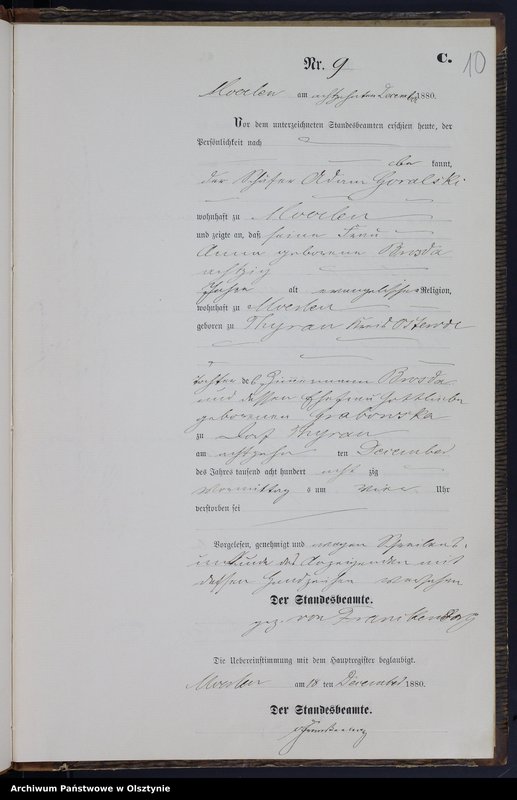 C.
10
Nr. 9
Moerlen am achtzehnten December 1880.
Vor dem unterzeichneten Standesbeamten erschien heute, der
Persönlichkeit nach
be kannt,
der Schäfer Adam Goralski
wohnhaft zu Moerlen
und zeigte an, daß seine Frau
Anna geborene Brosda
achtzig
Jahre alt evangelischer Religion,
wohnhaft zu Moerlen
geboren zu Thyrau Kreis Osterode
Tochter des Zimermann Brosda
und dessen Ehefrau Gottliebe
geborenen Grabowska
zu Dorf Thyrau
am achtzehn ten December
des Jahres tausend acht hundert acht zig
Vormittag s um vier Uhr
verstorben sei
Vorgelesen, genehmigt und wegen Schreibens-
unkunde des Anzeigenden mit
dessen Handzeichen versehen
Der Standesbeamte.
gez. von Frankenberg
Die Uebereinstimmung mit dem Hauptregister beglaubigt.
Moerlen am 18 ten December 1880.
Der Standesbeamte.
vFrankenberg
Archiwum Państwowe w Olsztynie